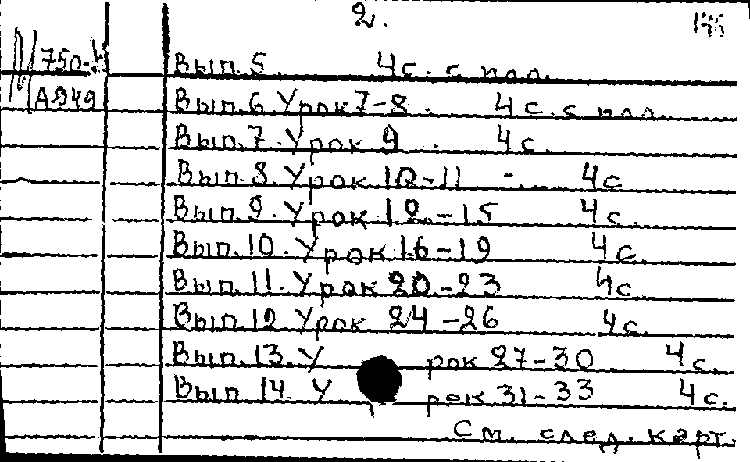 2.
Вып. 5 4 с. с илл.
Вып. 6 Урок 7-8. 4 с. с илл.
А949
Вып. 7. Урок 9. 4 с.
Вып. 8. Урок 10-11 - 4 с
Вып. 9. Урок 12.-15 4 с.
Вып. 10. Урок 16-19 4 с.
Вып. 11. Урок 20-23 4 с
Вып. 12 Урок 24-26 4 с.
Вып. 13. Урок 27-30 4 с.
Вып. 14. Урок 31-33 4 с.
См. след. карт.